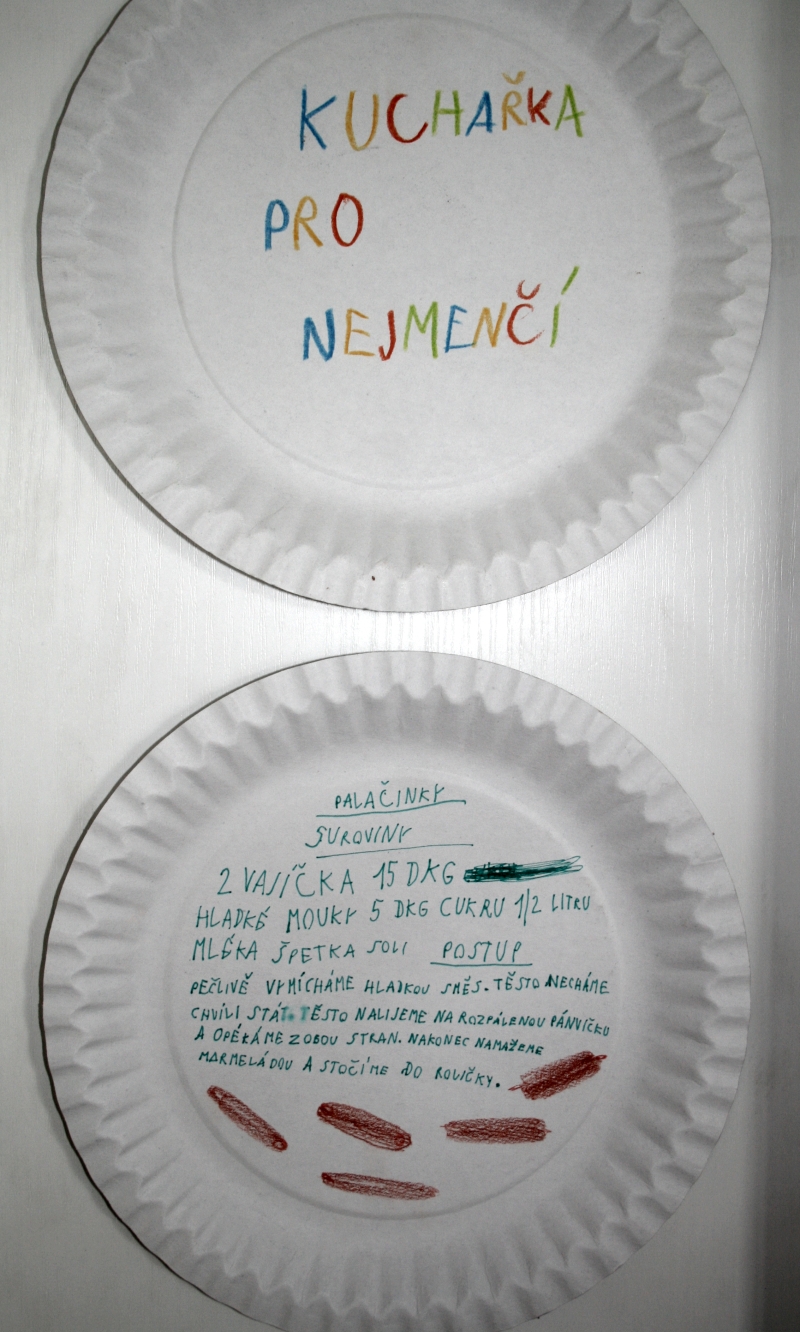 KUCHAŘKA
PRO
NEJMENČÍ
PALAČINKY
SUROVINY
2 VAJÍČKA 15 DKG
HLADKÉ MOUKY 5 DKG CUKRU 1/2 LITRU
MLÉKA ŠPETKA SOLI POSTUP
PEČLIVĚ VYMÍCHÁME HLADKOU SMĚS. TĚSTO NECHÁME
CHVÍLI STÁT. TĚSTO NALIJEME NA ROZPÁLENOU PÁNVIČKU
A OPÉKÁME Z OBOU STRAN. NAKONEC NAMAŽEME
MARMELÁDOU A STOČÍME DO ROLIČKY.